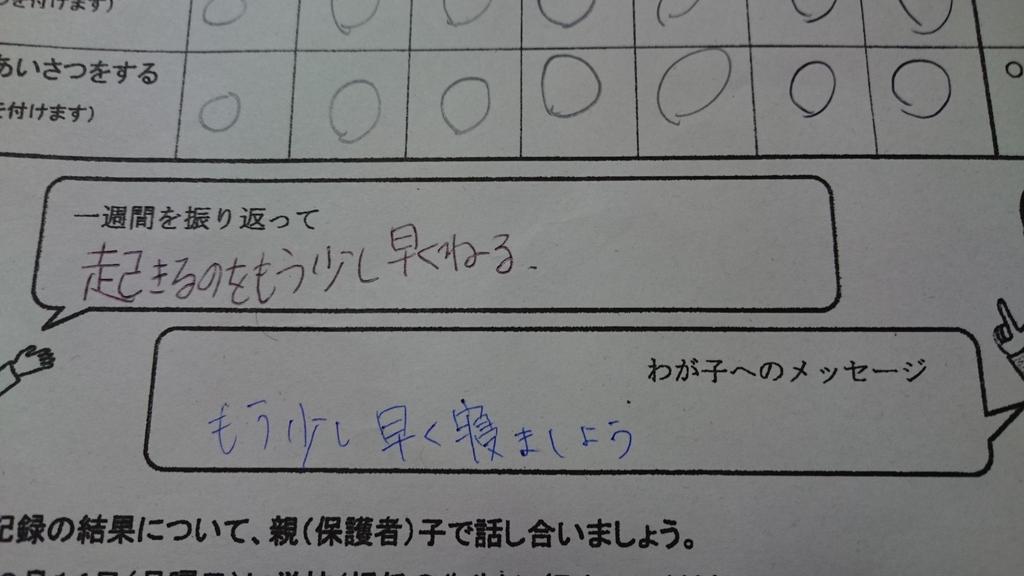 を付けます)
あいさつをする
を付けます)
一週間を振り返って
起きるのをもう少し早くねーる.
わが子へのメッセージ
もう少し早く寝ましょう
記録の結果について、親(保護者)子で話し合いましょう。